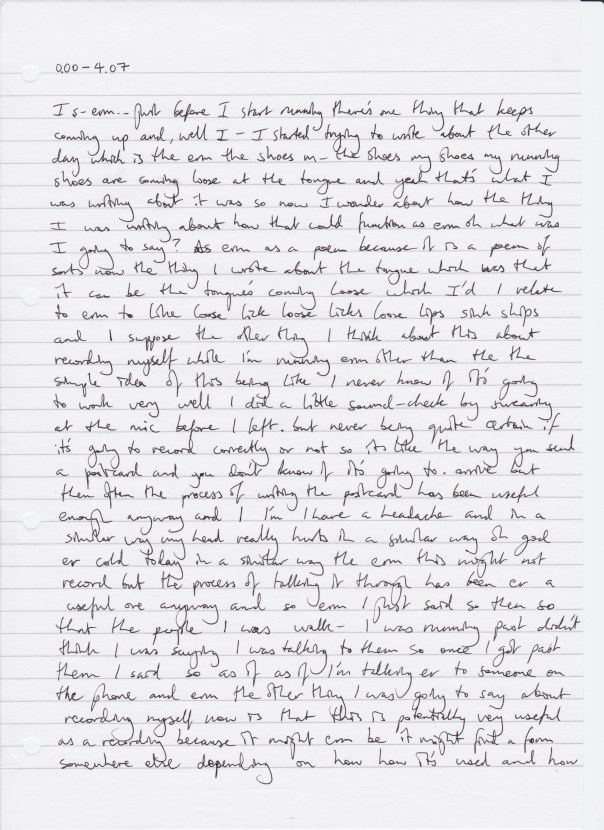 0.00 – 4.07
I s- erm... just before I start running there's one thing that keeps
coming up and, well I - I started trying to write about the other
day which is the erm the shoes m- the shoes my shoes my running
shoes are coming loose at the tongue and yeah that's what I
was writing about it was so now I wonder about how the thing
I was writing about how that could function as erm oh what was
I going to say? As erm as a poem because it is a poem of
sorts now the thing I wrote about the tongue which was that
it can be the tongue's coming loose which I'd I relate
to erm to like loose lick loose licks loose lips sink ships
and I suppose the other thing I think about this about
recording myself while I'm running erm other than the the
simple idea of this being like I never know if it's going
to work very well I did a little sound-check by swearing
at the mic before I left. but never being quite certain if
it's going to record correctly or not so it's like the way you send
a postcard and you don't know if it's going to. arrive but
then often the process of writing the postcard has been useful
enough anyway and I I'm I have a headache and in a
similar way my head really hurts in a similar way oh god
er cold today in a similar way the erm this might not
record but the process of talking it through has been er a
useful one anyway and so erm I just said so then so
that the people I was walk- I was running past didn't
think I was saying I was talking to them so once I got past
them I said so as if as if I'm talking er to someone on
the phone and erm the other thing I was going to say about
recording myself now is that this is potentially very useful
as a recording because it might erm be it might find a form
somewhere else depending on how how it's used and how